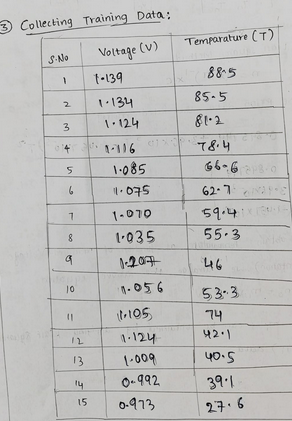 ③ Collecting Training Data:
S.No Voltage (V) Temparature (T)
1 1.139 88.5
2 1.134 85.5
3 1.124 81.2
4 1.116 78.4
5 1.085 66.6
6 1.075 62.7
7 1.070 59.4
8 1.035 55.3
9 46
10 1.056 53.3
11 1.105 74
12 1.124 42.1
13 1.009 40.5
14 0.992 39.1
15 0.973 27.6